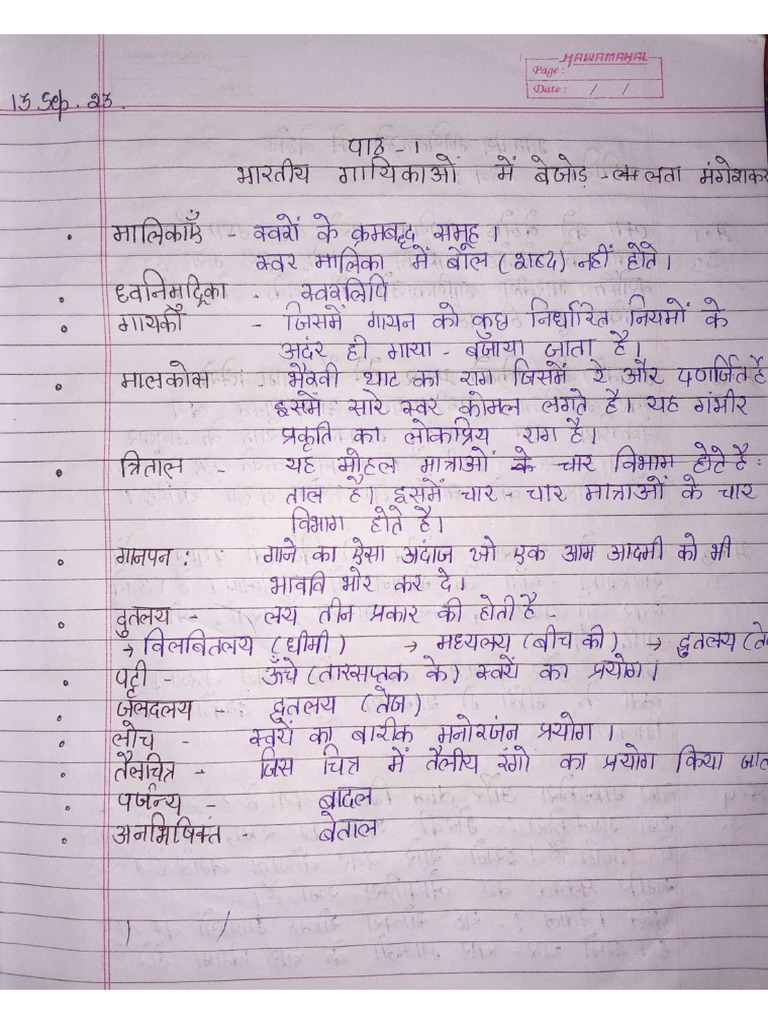 HAWAMAHAL
Page :
Date : / /
13 Sep. 23.
पाठ - 1
भारतीय गायिकाओं में बेजोड़ - लता मंगेशकर
• मालिकाएँ - स्वरों के क्रमबद्ध समूह ।
स्वर मालिका में बोल (शब्द) नहीं होते।
• ध्वनिमद्रिका - स्वरलिपि
• गायकी - जिसमें गायन को कुछ निर्धारित नियमों के
अदंर ही गाया - बजाया जाता है।
• मालकोस - भैरवी थाट का राग जिसमें रे और प वर्जित है
इसमें सारे स्वर कोमल लगते है। यह गंभीर
प्रकृति का लोकप्रिय राग है।
• त्रिताल - यह सोहल मात्राओं के चार विभाग होते है :
ताल है। इसमें चार - चार मात्राओं के चार
विभाग होते है।
• गानपन : गाने का ऐसा अदांज जो एक आम आदमी को भी
भाववि भोर कर दे।
• द्रुतलय - लय तीन प्रकार की होती है -
→ विलबितलय (धीमी) → मध्यलय (बीच की) → द्रुतलय (ते
• पट्टी - ऊँचे (तारसप्तक के) स्वरों का प्रयोग।
• जलदलय - द्रुतलय (तेज)
• लोच - स्वरों का बारीक मनोरजंन प्रयोग ।
• तैलचित्र - जिस चित्र में तैलीय रंगो का प्रयोग किया जात
• पर्जन्य - बादल
• अनभिषिक्त - बेताल